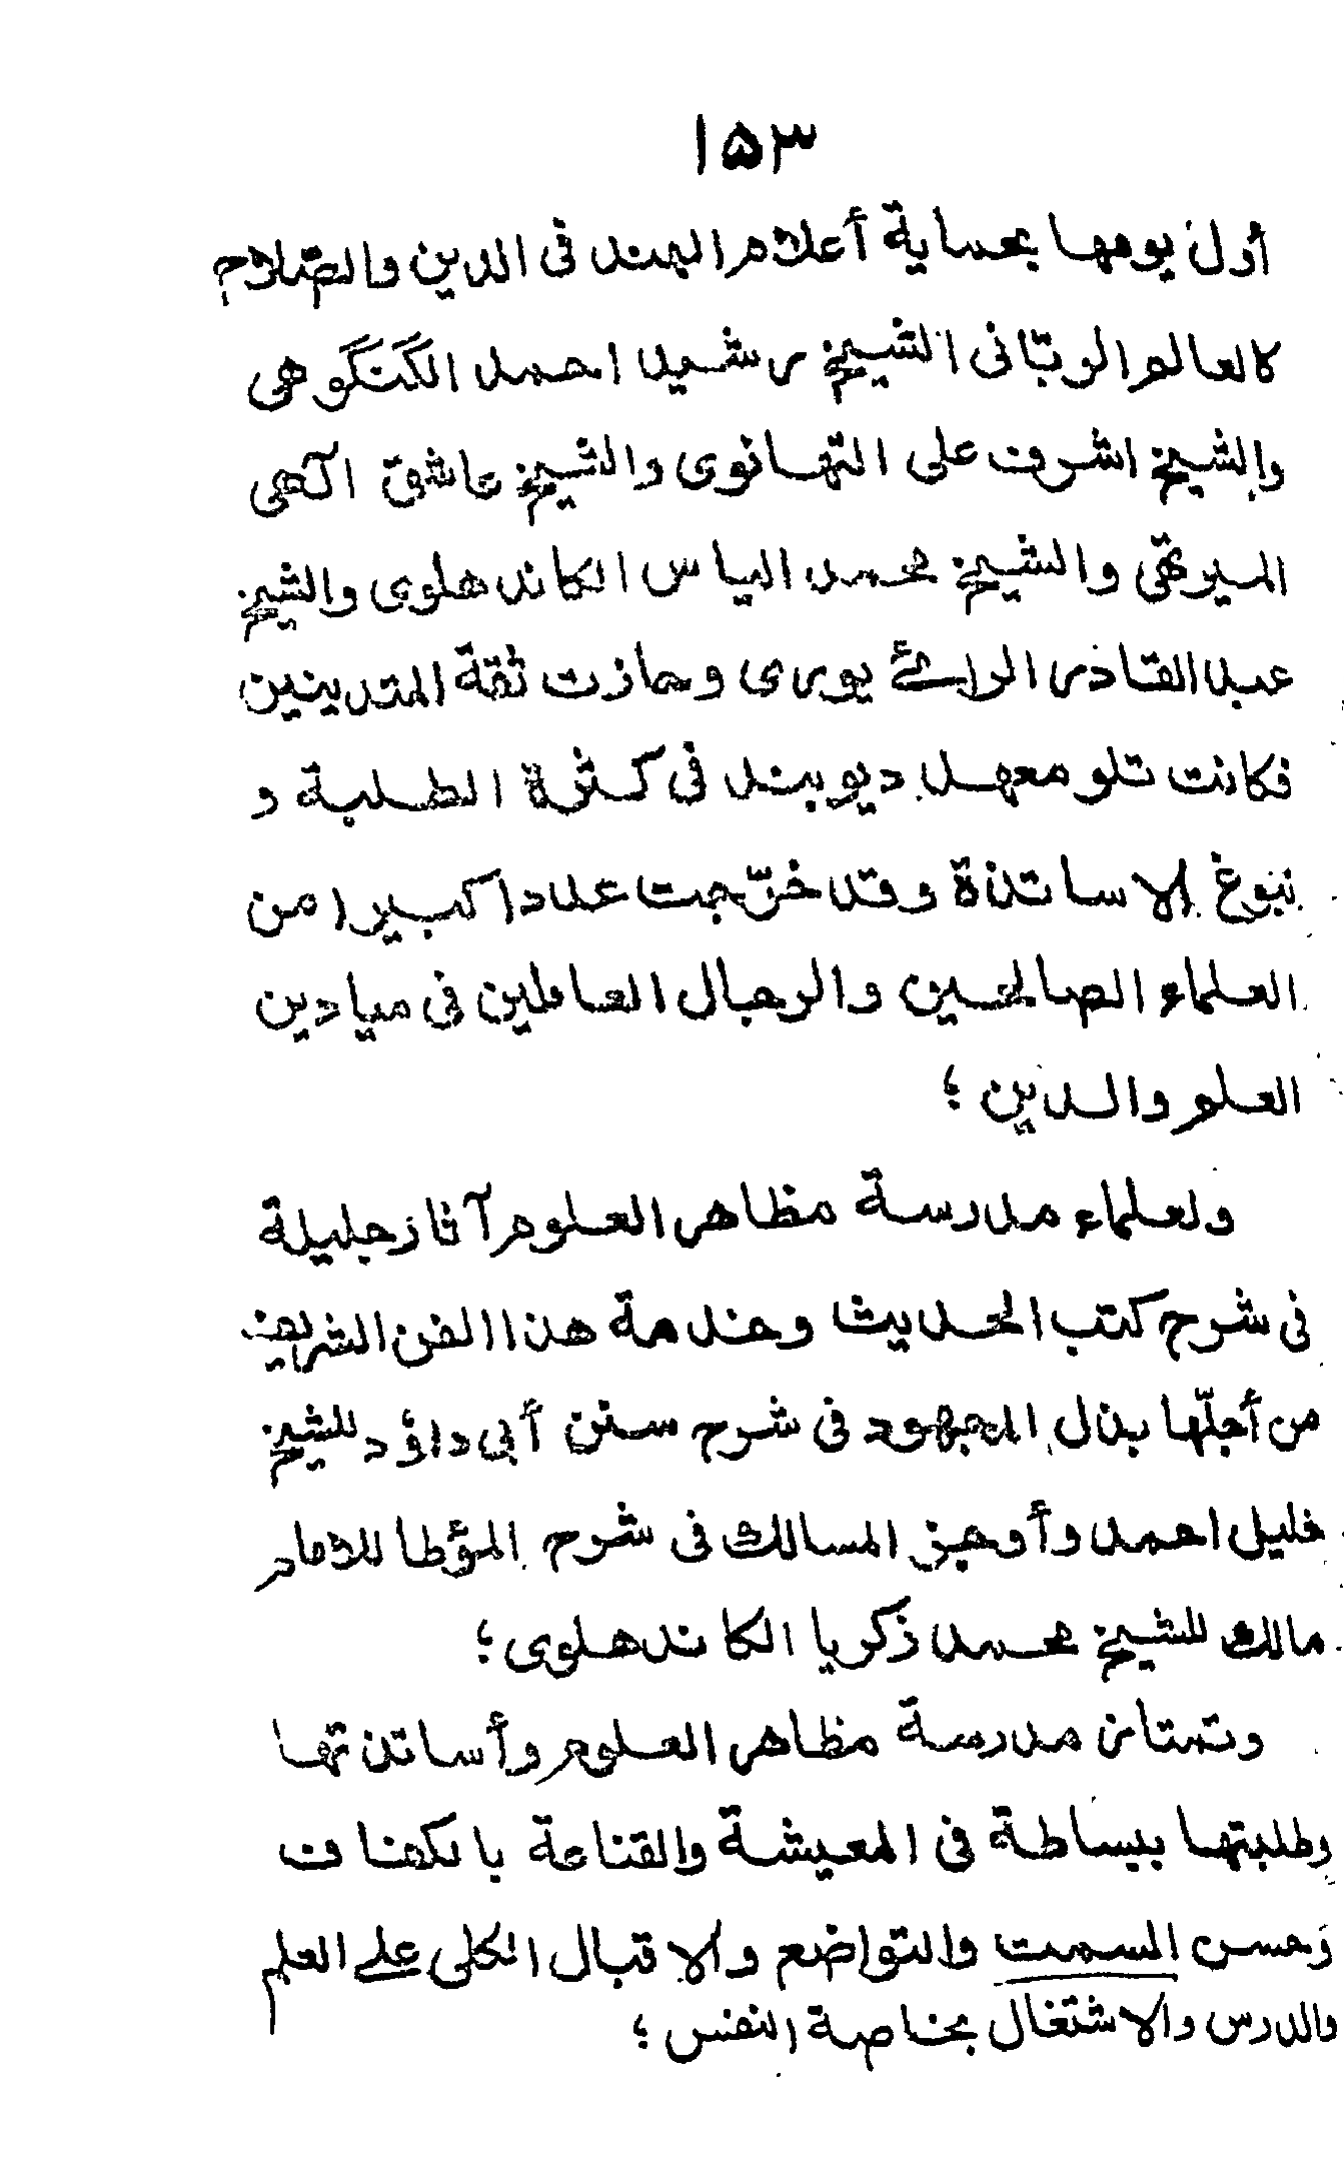 ١٥٣
أول يومها بحماية أعلام الهند فى الدين والصّلاح
كالعالم الربّانى الشيخ رشيد احمد الگنگوهى
والشيخ اشرف على التهانوى والشيخ عاشق الٓهى
الميرتهى والشيخ محمد الياس الكاندهلوى والشيخ
عبد القادر الرائے پورى وحازت ثقة المتدينين
فكانت تلو معهد ديوبند فى كثرة الطلبة و
نبوغ الاساتذة وقد خرّجت عددا كبيرا من
العلماء الصالحين والرجال العاملين فى ميادين
العلم والدين ؛
ولعلماء مدرسة مظاهر العلوم آثار جليلة
فى شرح كتب الحديث وخدمة هذا الفن الشريف
من أجلّها بذل المجهود فى شرح سنن أبى داؤد للشيخ
خليل احمد وأوجز المسالك فى شرح المؤطا للامام
مالك للشيخ محمد زكريا الكاندهلوى ؛
وتمتاز مدرسة مظاهر العلوم وأساتذتها
وطلبتها ببساطة فى المعيشة والقناعة بالكفاف
وحسن السمت والتواضع والاقبال الكلى علے العلم
والدرس والاشتغال بخاصة النفس ؛